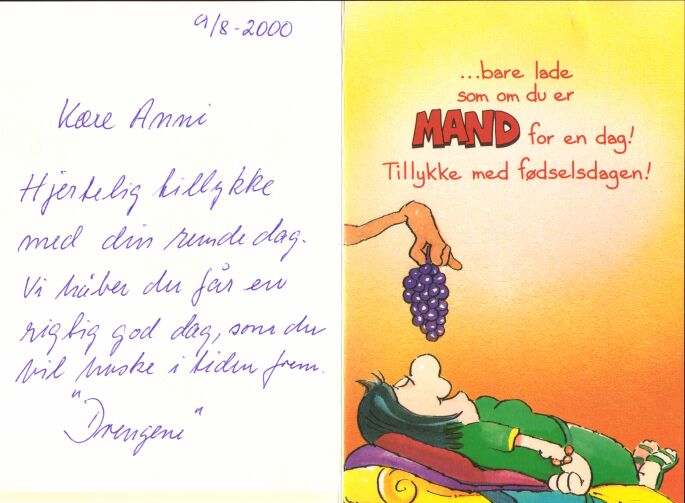 9/8-2000
Kære Anni
Hjertelig tillykke
med din runde dag.
Vi håber du får en
rigtig god dag, som du
vil huske i tiden frem.
"Drengene"
...bare lade
som om du er
MAND for en dag!
Tillykke med fødselsdagen!